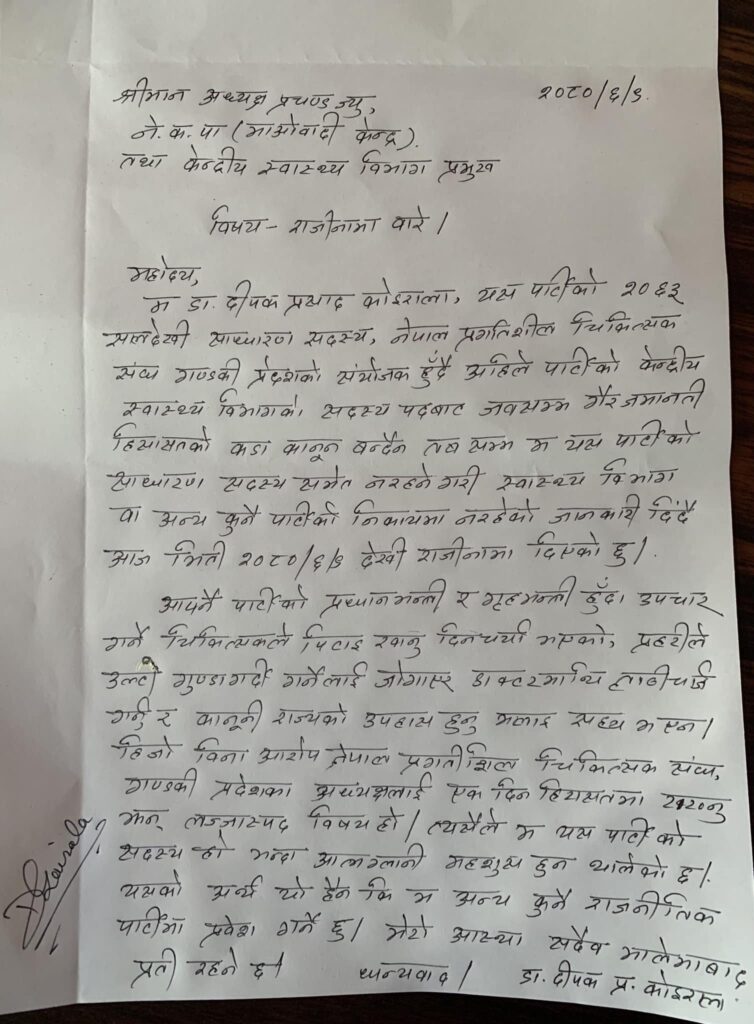 श्रीमान अध्यक्ष प्रचण्ड ज्यु,
२०८०/६/८
ने. क. पा (माओवादी केन्द्र).
तथा केन्द्रीय स्वास्थ्य विभाग प्रमुख
विषय - राजीनामा बारे।
महोदय,
म डा. दीपक प्रसाद कोइराला, यस पार्टीको २०६३
सालदेखी साधारण सदस्य, नेपाल प्रगतिशील चिकित्सक
संघ गण्डकी प्रदेशको संयोजक हुँदै अहिले पार्टीको केन्द्रीय
स्वास्थ्य विभागको सदस्य पदबाट जवसम्म गैर जमानती
हिरासतको कडा कानून बन्दैन तब सम्म म यस पार्टीको
साधारण सदस्य समेत नरहने गरी स्वास्थ्य विभाग
वा अन्य कुनै पार्टीको निकायमा नरहेको जानकारी दिँदै
आज मिती २०८०/६/८ देखी राजीनामा दिएको छु।
आफ्नै पार्टीको प्रधानमन्त्री र गृहमन्त्री हुँदा उपचार
गर्ने चिकित्सकले पिटाइ खानु दिनचर्या भएको, प्रहरीले
उल्टो गुण्डागर्दी गर्नेलाई जोगाएर डाक्टरमाथि लाठीचार्ज
गर्नु र कानूनी राज्यको उपहास हुनु मलाइ सह्य भएन।
हिजो विना आरोप नेपाल प्रगतीशिल चिकित्सक संघ,
गण्डकी प्रदेशका अध्यक्षलाई एक दिन हिरासतमा राख्नु
झन् लज्जास्पद विषय हो। त्यसैले म यस पार्टीको
सदस्य हो भन्दा आत्मग्लानी महशुस हुन थालेको छ।
यसको अर्थ यो हैन कि म अन्य कुनै राजनीतिक
पार्टीमा प्रवेश गर्ने छु। मेरो आस्था सदैव मालेमाबाद
प्रती रहने छ। धन्यवाद। डा. दीपक प्र. कोइराला
DKoirala